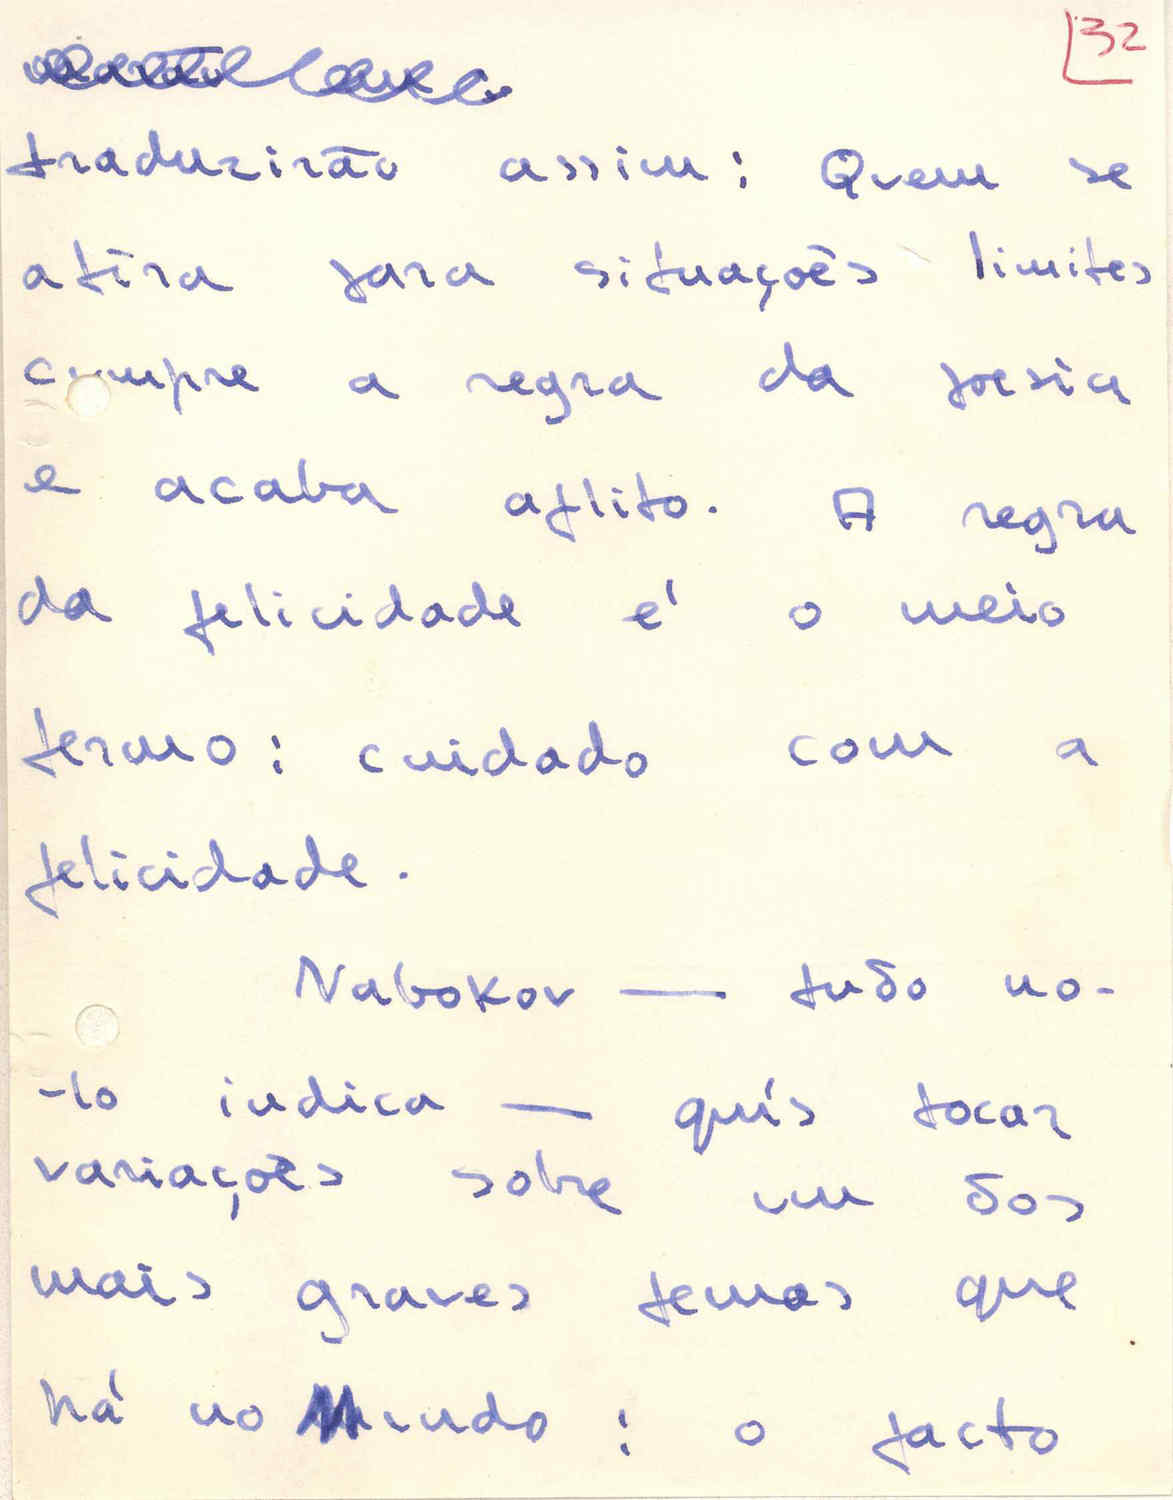 32
traduzirão assim: Quem se
atira para situações limites
cumpre a regra da poesia
e acaba aflito. A regra
da felicidade é o meio
termo: cuidado com a
felicidade.
Nabokov — tudo no-
-lo indica — quis tocar
variações sobre um dos
mais graves temas que
há no Mundo: o facto